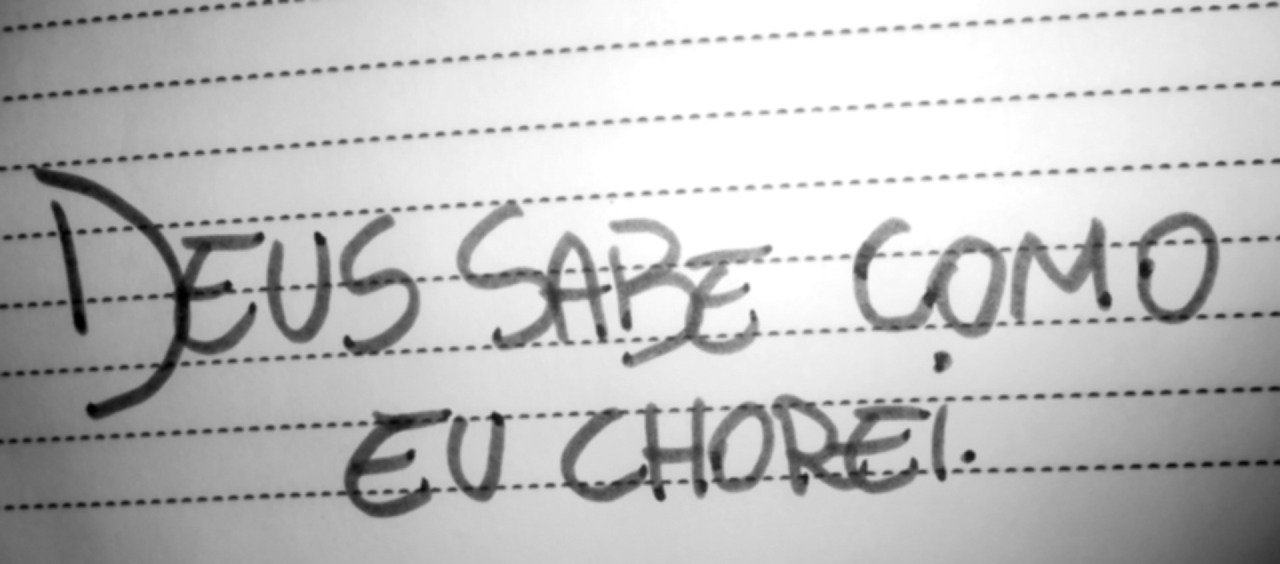 DEUS SABE COMO
EU CHOREI.